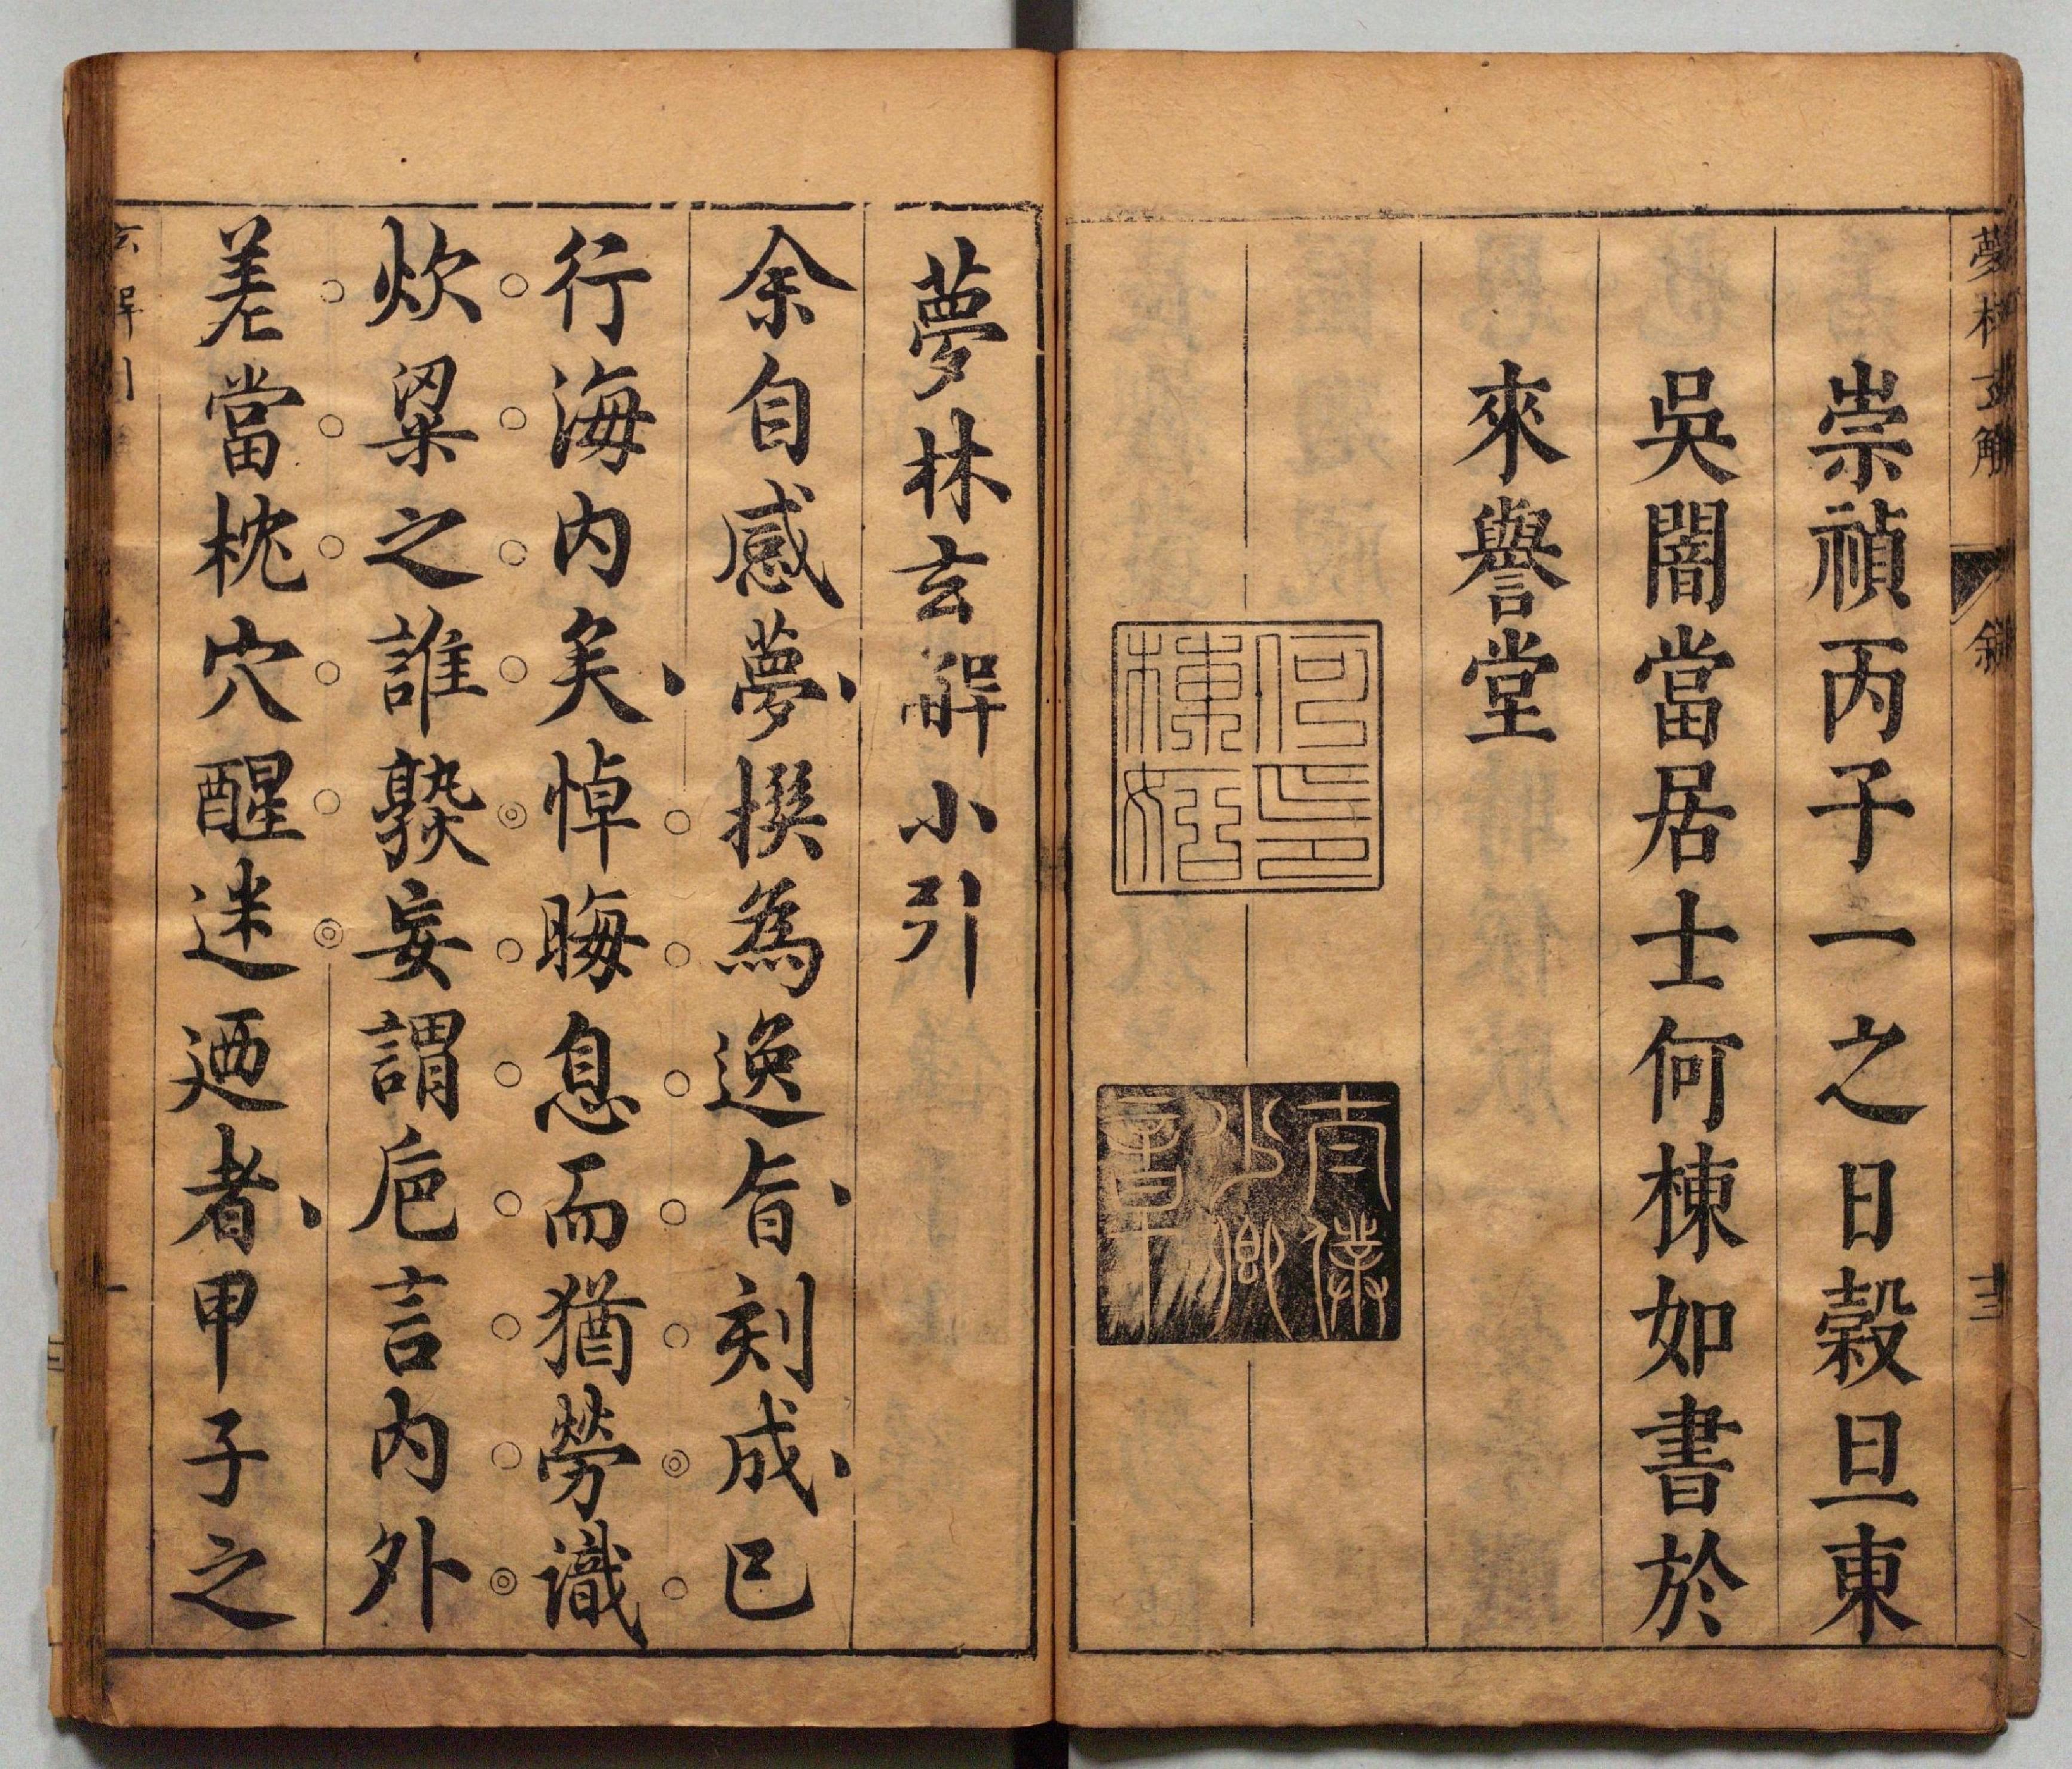 夢林玄解
敘
崇禎丙子一之日穀旦東
吳闇當居士何棟如書於
來譽堂
何印棟如
太僕少卿章
夢林玄解小引
余自感夢撰為逸旨刻成已
行海内矣悼晦息而猶勞識
炊粱之誰孰妄謂巵言内外
差當枕穴醒迷迺者甲子之
玄解引
一